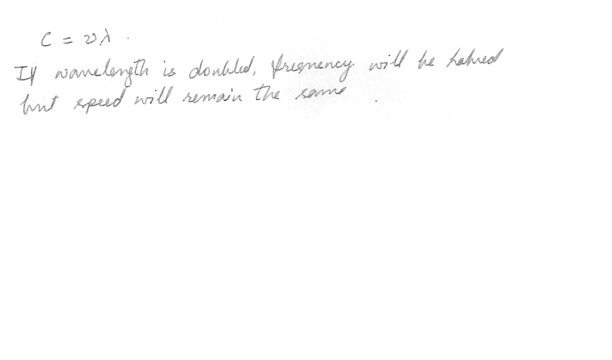 C = νλ .
If wavelength is doubled, frequency will be halved
but speed will remain the same .